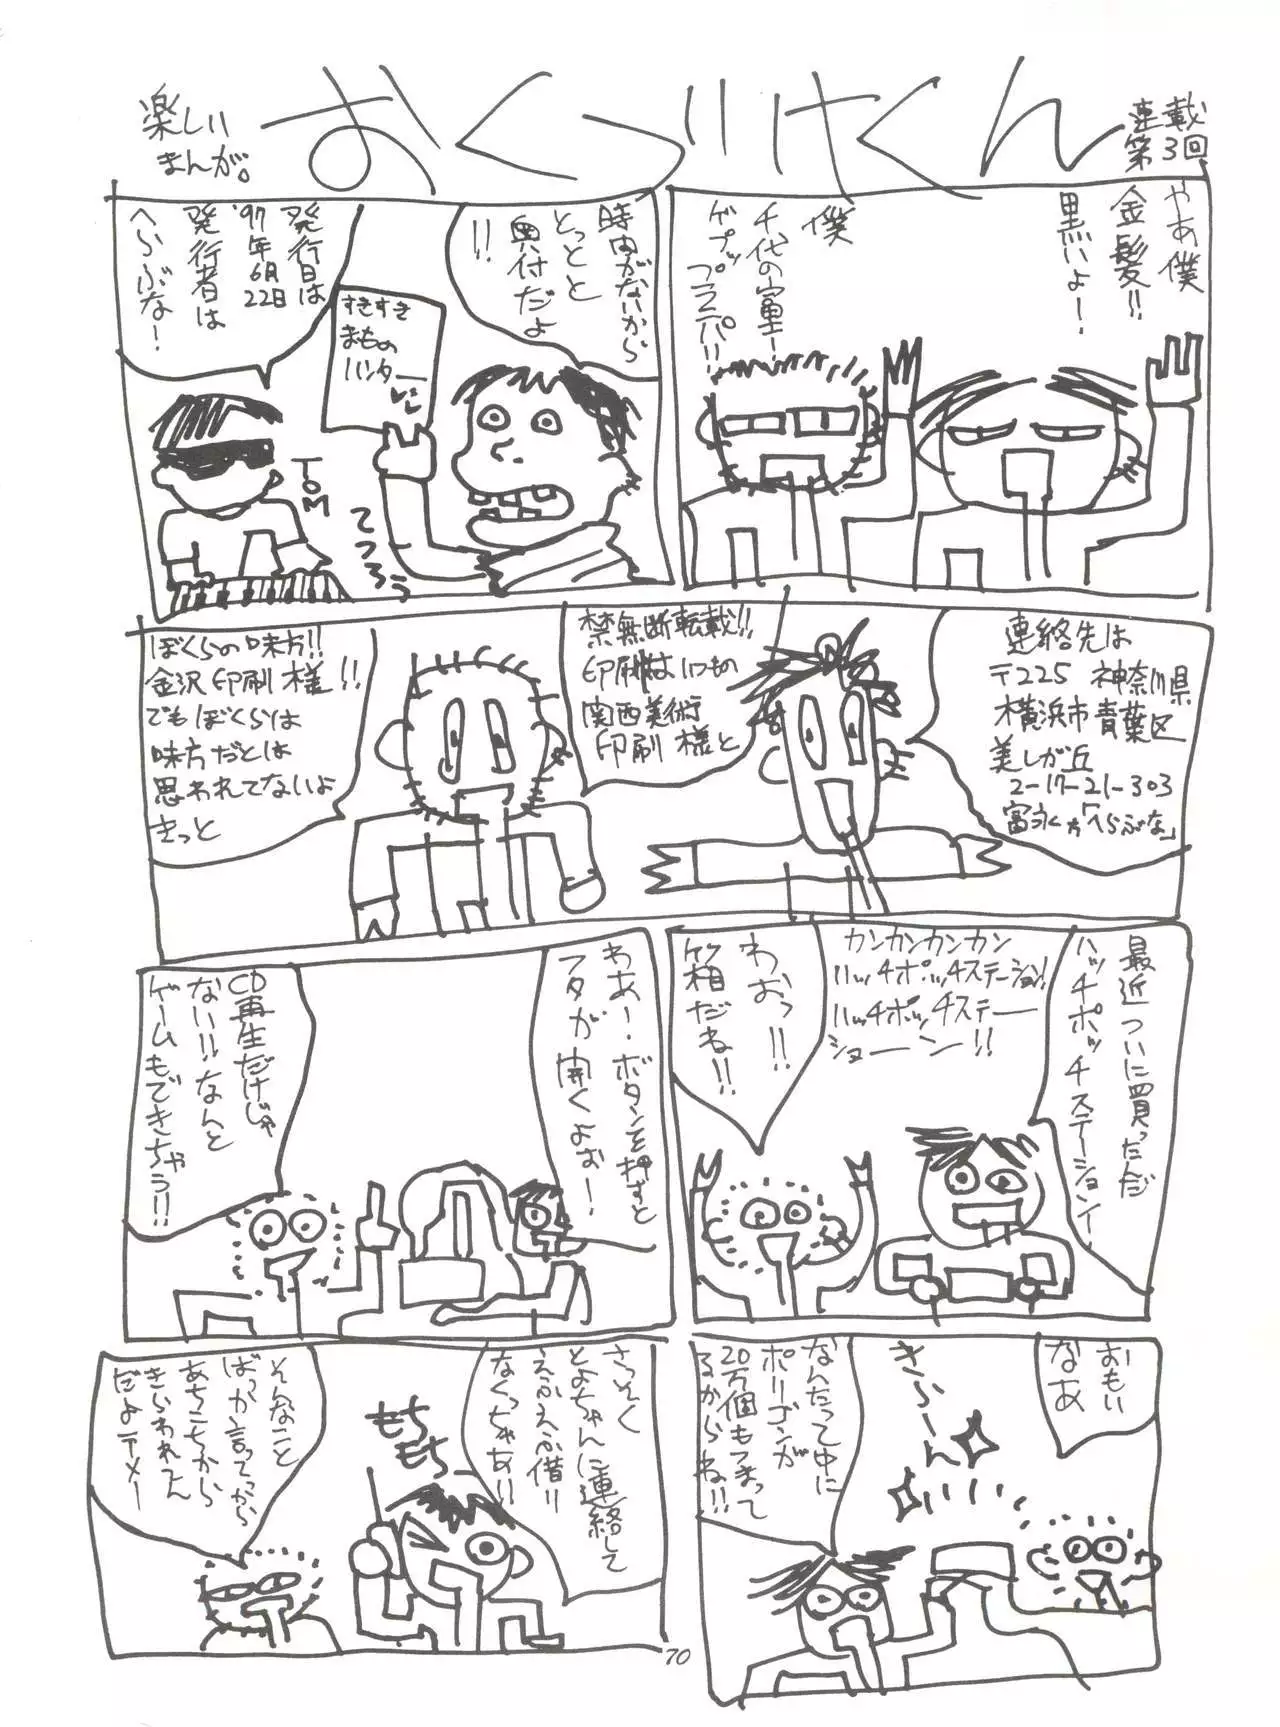 楽しい
まんが。
おくづけくん
連載
第3回
やあ僕
金髪!!
黒いよ!
僕
千代の富士!
ゲプップラパパ!!
時間がないから
とっとと
奥付だよ
!!
すきすき
まもの
ハンター
発行日は
'97年
6月
22日
発行者は
へらぶな!
TOM
てつろう
連絡先は
〒225 神奈川県
横浜市青葉区
美しが丘
2-17-21-303
富永方「へらぶな」
禁無断転載!!
印刷はいつもの
関西美術
印刷様と
ぼくらの味方!!
金沢印刷様!!
でもぼくらは
味方だとは
思われてないよ
きっと
最近ついに買っただ
ハッチポッチステーションイー
カンカンカンカン
ハッチポッチステーション!
ハッチポッチステー
ショーン!!
わおっ!!
ケ箱だね!!
わあー、ボタンを押すと
フタが開くよお!
CD再生だけじゃ
ない!!なんと
ゲームもできちゃう!!
おもい
なあ
きらーん
なんたって中に
ポリゴンが
20万個もつまって
るからね!!
さっそく
とよちゃんに連絡して
えふえふ借り
なくっちゃあ!!
もち
もち
そんなこと
ばっか言ってっから
あちこちから
きらわれてん
だよテメー
70